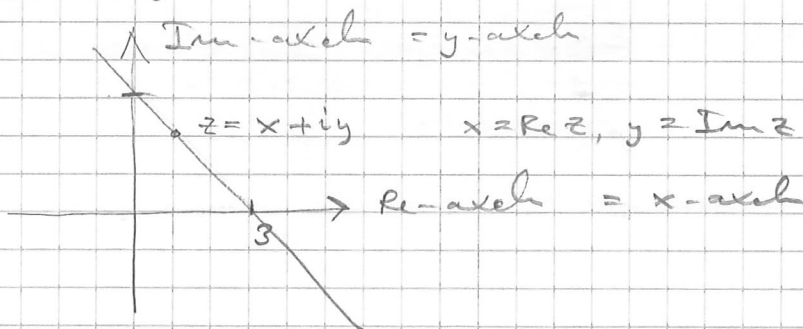 Im-axeln = y-axeln
z = x + iy x = Re z, y = Im z
Re-axeln = x-axeln
3